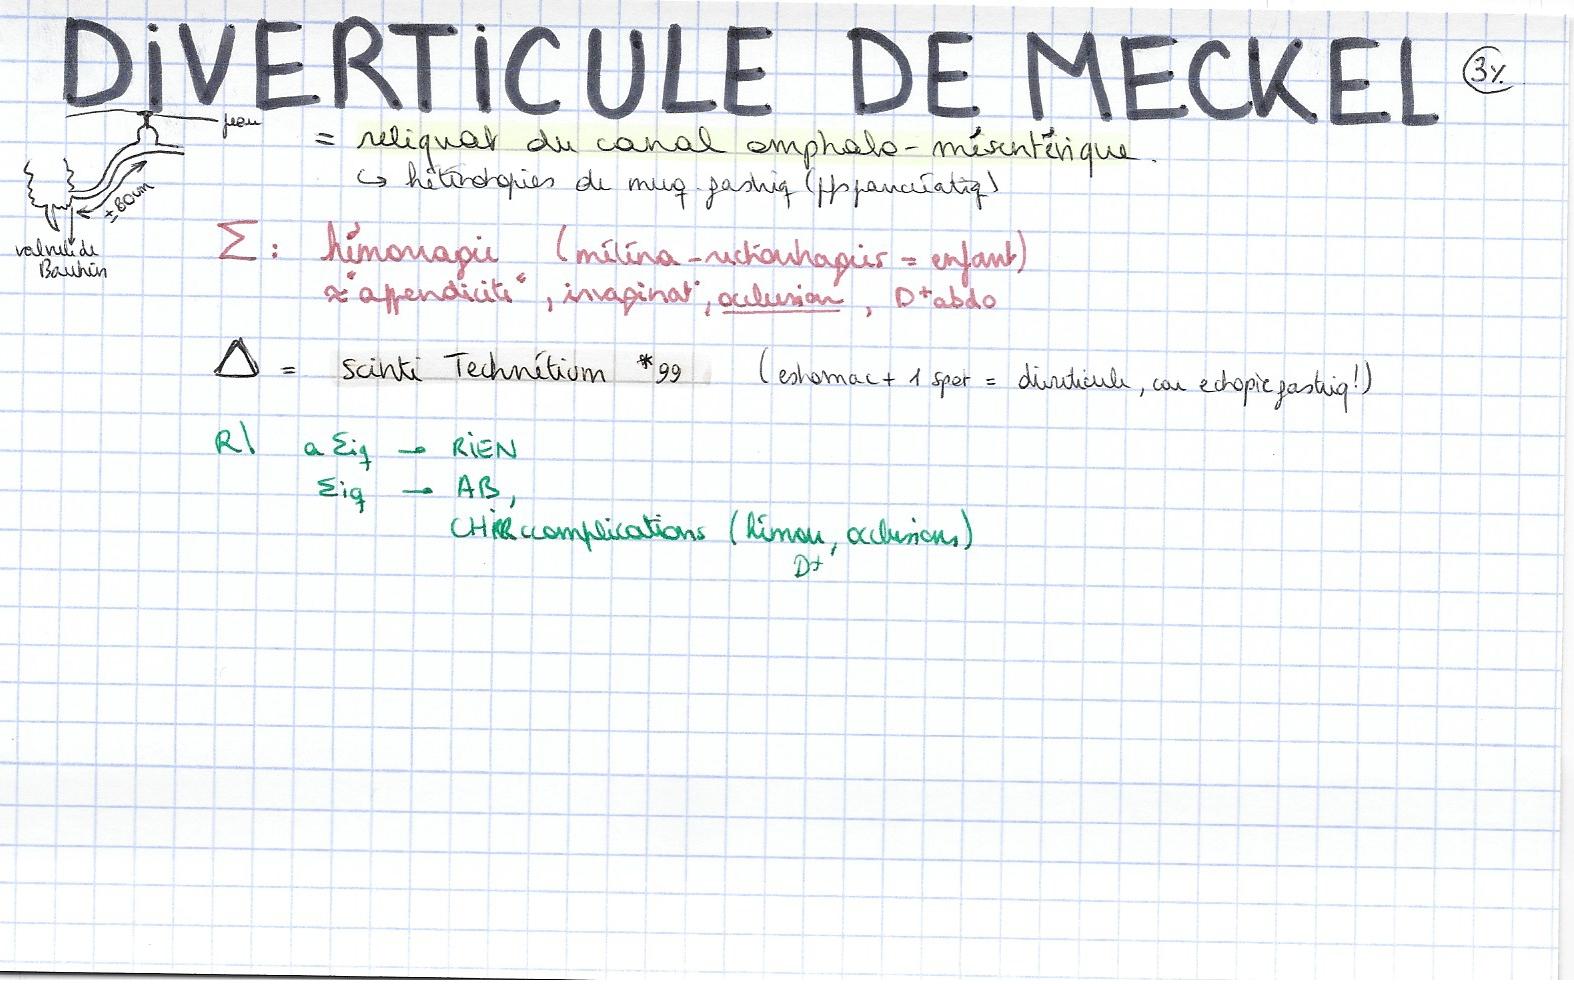 DiVERTiCULE DE MECKEL 3%
peau
= reliquat du canal omphalo-mésentérique.
↳ hétérotopies de muq. gastriq (pfs pancréatiq)
± 80cm
valvule de
Bauhin
Σ : hémorragie (méléna - rectorrhagies = enfant)
≈ "appendicite", invaginat°, occlusion, D+ abdo
Δ = scinti Technétium *99 (estomac + 1 spot = diverticule, car ectopie gastriq!)
R\ a Σiq → RiEN
Σiq → AB,
CHiR complications (hémorr, occlusions)
D+